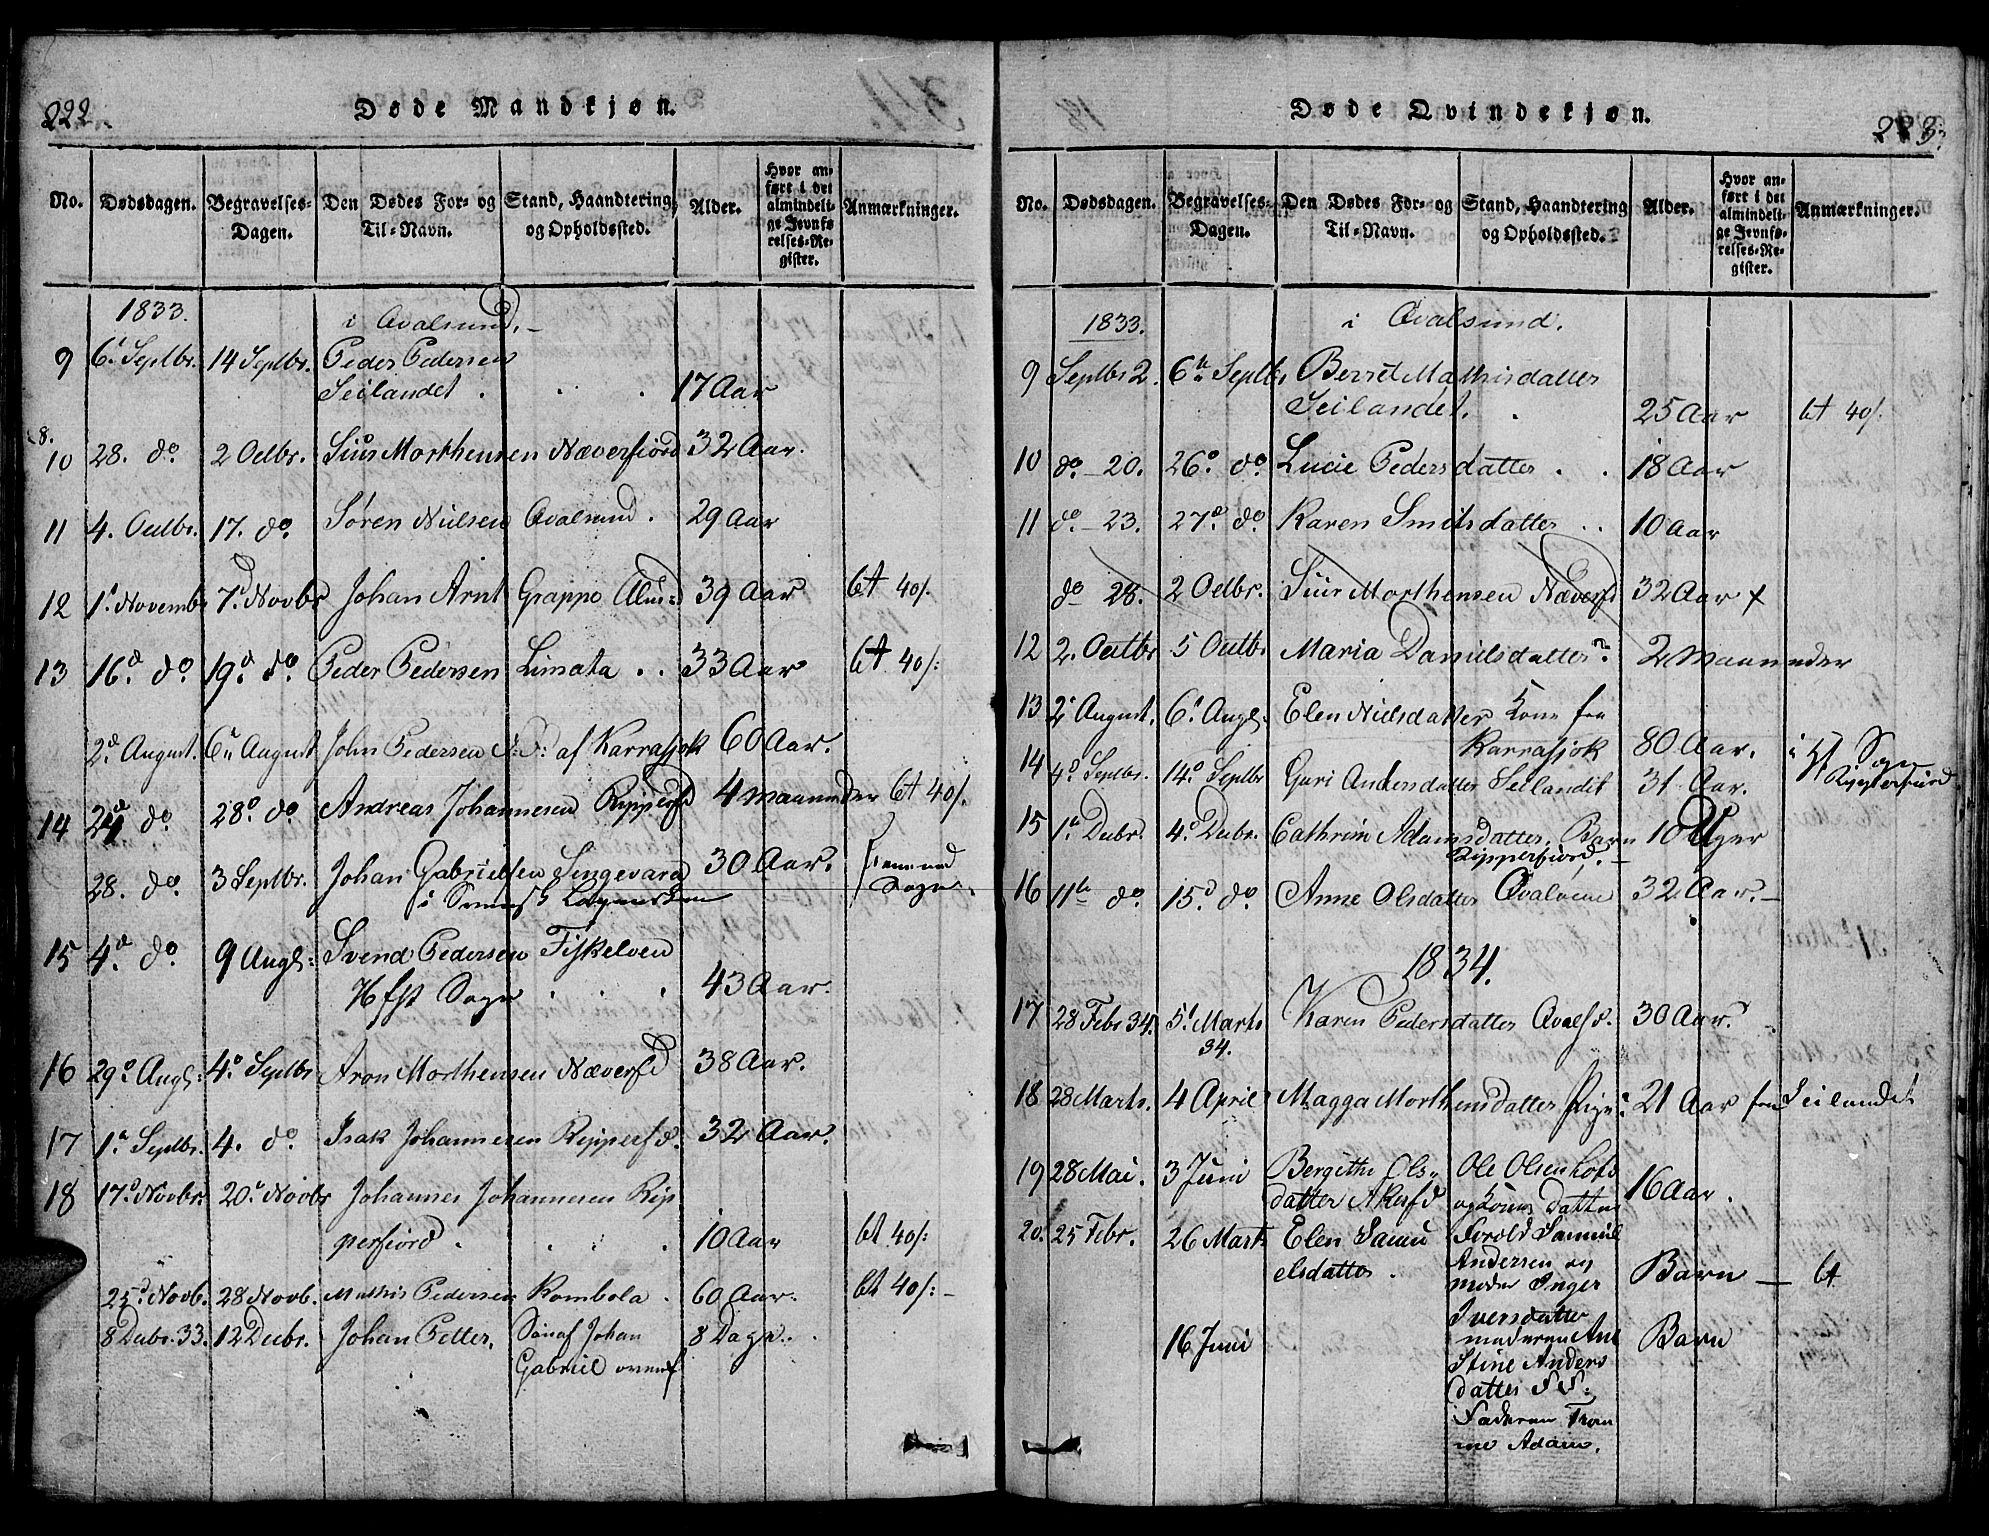 222.
Døde Mandkjøn.
No. Dødsdagen. Begravelses-Dagen. Den Dødes For- og Til-Navn. Stand, Haandtering, og Opholdssted. Alder. Hvor anført i det almindelige Jevnførelses-Register. Anmærkninger.
1833. i Qvalsund.
9 6' Septbr. 14 Septbr. Peder Pedersen
Seilandet . . . 17 Aar
10 28. do. 2 Octbr. Siur Morthensen Næverfiord 32 Aar.
11 4. Octbr. 17. do Søren Nielsen Qvalsund. 29 Aar
12 1' Novembr 7d Novbr Johan Arnt Grappo 39 Aar bt 40/.
13 16d do. 19d do. Peder Pedersen Limata . . 33 Aar bt 40/:
2d August. 6u August John Pedersen af Karrasjok 60 Aar.
14 24 do. 28o do Andreas Johannesen Ripperfd 4 maaneder bt 40/.
28. do. 3 Septbr. Johan Gabrielsen Singevara 30 Aar. fremmed
Sogn.
15 4d do. 9 Augs: Svend Pedersen Fiskelven
Hfst Sogn . . . 43 Aar.
16 29o Augs: 4o Septbr Aron Morthensen Næverfd 38 Aar.
17 1' Septbr. 4. do. Isak Johannesen Ripperfd. 32 Aar.
18 17d Novbr. 20' Novbr Johannes Johannesen Rip
perfiord . . . . 10 Aar bt 40/:
25d Novb. 28 Novb. Mathis Pedersen Rombola . 60 Aar. bt 40/:-
8 Decbr. 33. 12 Decbr. Johan Petter, Søn af Johan 8 Dage.
Gabriel
223.
Døde Qvindekjøn.
No. Dødsdagen. Begravelses-Dagen. Den Dødes For- og Til-Navn. Stand, Haandtering og Opholdssted. Alder. Hvor anført i det almindelige Jevnførelses-Register. Anmærkninger.
1833. i Qvalsund.
9 Septbr 2. 6te Septbr Berret Mathisdatter
Seilandet. . 25 Aar bt 40/.
10 do - 20. 26o do. Lucie Pedersdatter . . 18 Aar
11 do - 23. 27d do Karen Smitsdatter . . 10 Aar
do 28. 2 Octbr. Siur Morthensen Næverfd 32 Aar
12 2. Octbr 5 Octbr Maria Danielsdatter 2 maaneder
13 2' August. 6' Augs. Elen Nielsdatter Kone fra
Karrasjok 80 Aar.
14 4d Septbr. 14o Septbr Guri Andersdatter Seilandet 31 Aar. i Sogn
Ripperfiord
15 1' Decbr. 4' Decbr. Cathrim Adamsdatter. Barn 10 Uger
Ripperfiord.
16 11te do. 15d do. Anne Olsdatter 32 Aar.
1834.
17 28 Febr 34. 5' Marts Karen Pedersdatter Qvalsd. 30 Aar.
34.
18 28 Marts. 4 April Magga Morthensdatter Pige 21 Aar fra Seilandet
19 28 Mai. 3 Juni Bergithe Ols, Ole Olsen
datter Akerfd datter 16 Aar.
20. 25 Febr. 26 Marts Elen Samu Forold Samuel
elsdatter . Andersen og
moder Inger Barn - bt
Iversdatter
16 Juni moderen Ane Barn
Stine Anders
datter
Faderen Trom
me Adam.